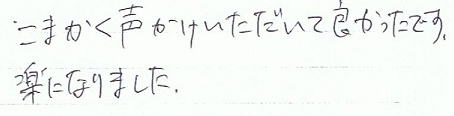 こまかく声かけいただいて良かったです.
楽になりました.